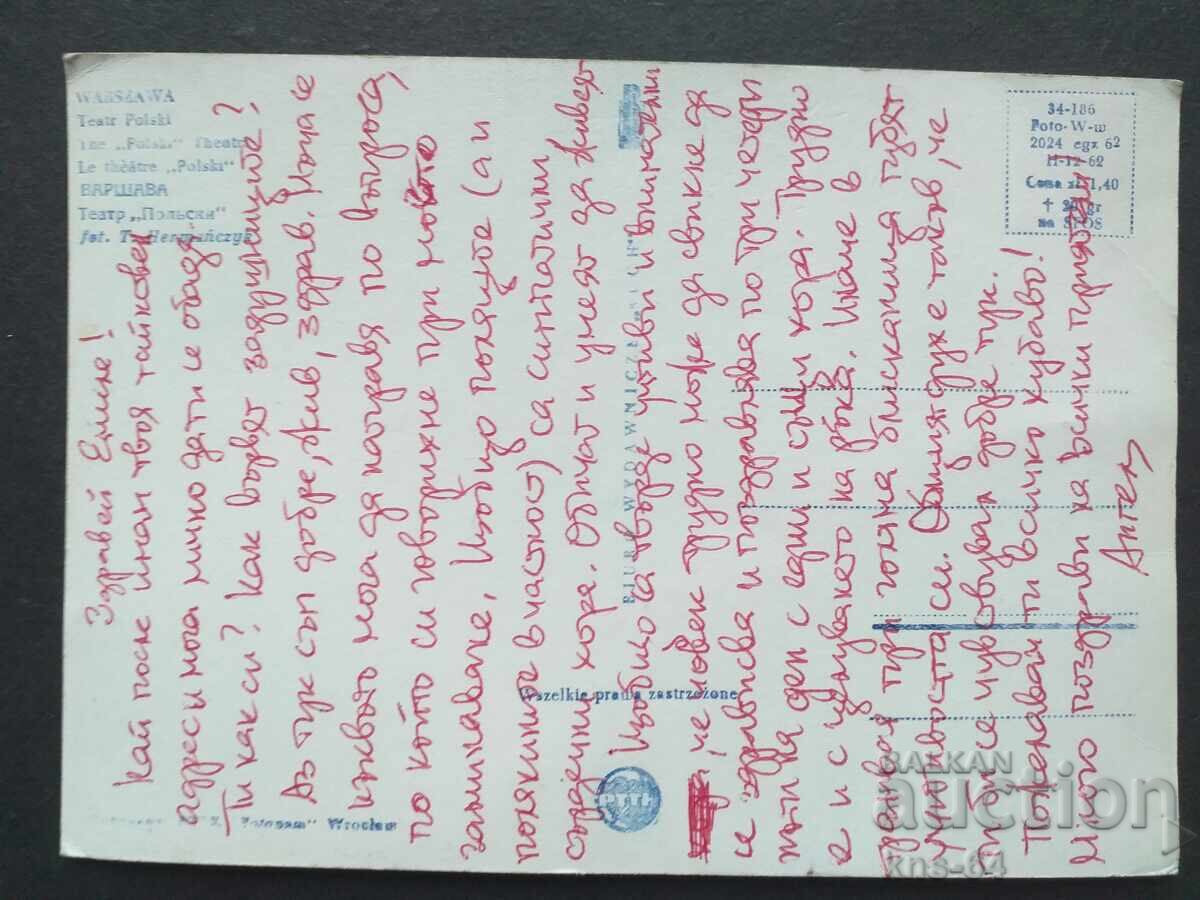 WARSZAWA
Teatr Polski
The „Polski" Theatre
Le théâtre „Polski"
ВАРШАВА
Театр „Польски"
fot. T. Hermańczyk
34-186
Foto-W-w
2024 egz 62
H-12-62
Cena zł 1,40
на
BIURO WYDAWNICZE „RUCH"
Wszelkie prawa zastrzeżone
"Fotopam" Wrocław
PTTK
Здравей Емине!
Най после имам твоя тайнствен
адрес и мога лично да ти се обадя.
Ти как си? Как вървят задружниците?
Аз тук съм добре, жив, здрав. Лошо е
какво мога да направя по въпроса,
по който си говорихме при моето
заминаване. Изобщо поляците (а и
полякините в частност) са симпатични
сърдечни хора. Обичат и умеят да живеят
Изобщо са твърде учтиви и внимателни
, че човек трудно може да свикне да
се здрависва и поздравлява по три четири
пъти на ден с едни и същи хора. Трудно
е и с целуването на ръка. Иначе в
трамвая при голяма блъсканица губят
учтивостта си. Общия дух е такъв, че
човек се чувствува добре тук.
Пожелавам ти всичко хубаво!
Много поздрави на всички приятели
Ангел
BALKAN
auction
kns-84